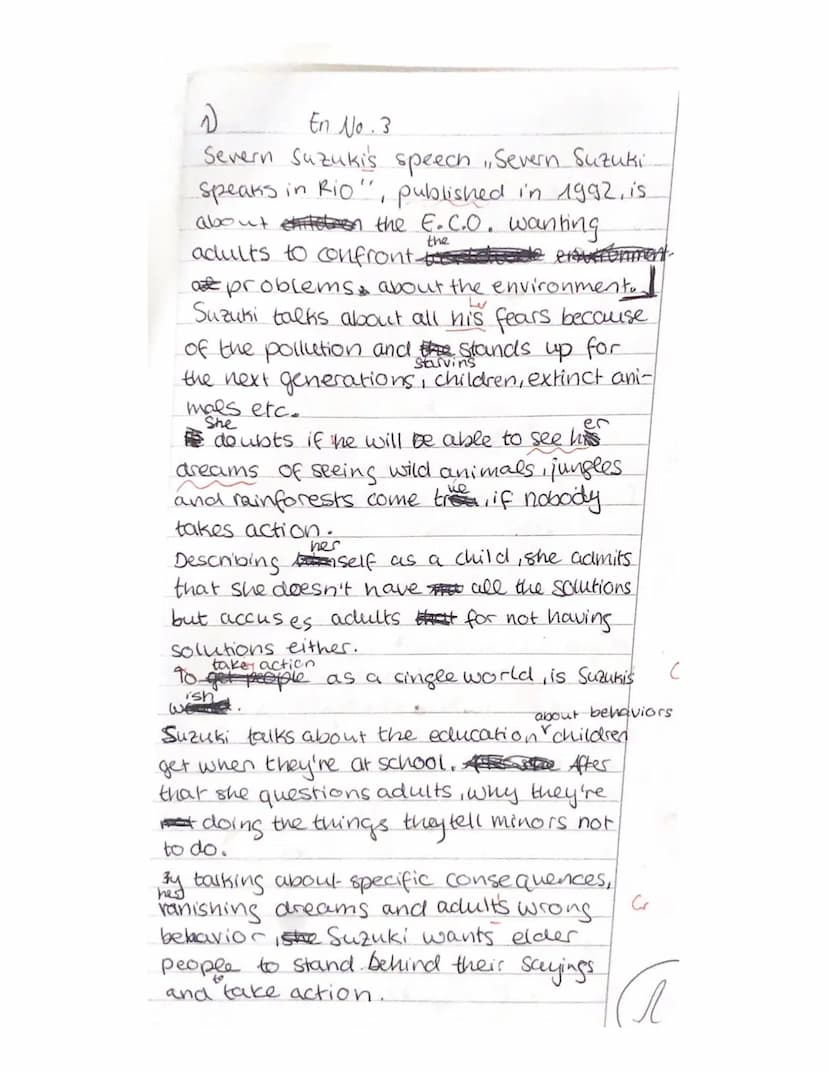 1) En No. 3
Severn Suzuki's speech „Severn Suzuki
speaks in Rio", published in 1992, is
about children the E.C.O. wanting
adults to confront the environment
problems about the environment.
Suzuki talks about all his her fears because
of the pollution and the stands up for
the next generations, starving children, extinct ani-
mals etc.
She doubts if he will be able to see her
dreams of seeing wild animals, jungles
and rainforests come true, if nobody
takes action.
Describing herself as a child, she admits
that she doesn't have all the solutions
but accuses adults that for not having
solutions either.
To get people take action as a cingle world, is Suzukis
wish.
Suzuki talks about the education about behaviors children
get when they're at school. After
that she questions adults, why they're
not doing the things they tell minors not
to do.
By talking about specific consequences,
her vanishing dreams and adult's wrong
behavior, she Suzuki wants elder
people to stand behind their sayings
and to take action.
C
Gr